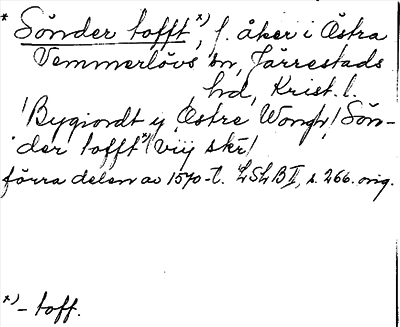 * Sönder tofft *), f. åker i Östra
Vemmerlövs sn, Järrestads
hd, Krist. l.
/Bygiordt y Östre Wongh/ Sön-
der tofft *) viij skr/
förra delen av 1570-t. LSLB II, s. 266. orig.
*) - toff.